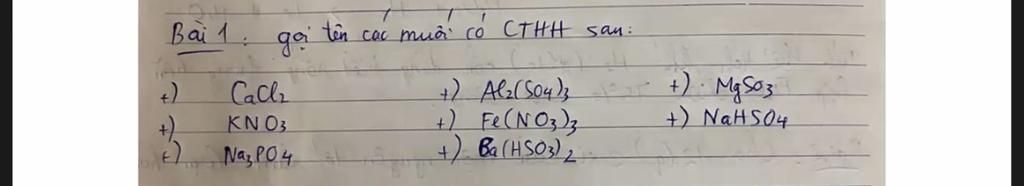 Bài 1: gọi tên các muối có CTHH sau:
+) CaCl2 +) Al2(SO4)3 +) MgSO3
+) KNO3 +) Fe(NO3)3 +) NaHSO4
+) Na3PO4 +) Ba(HSO3)2